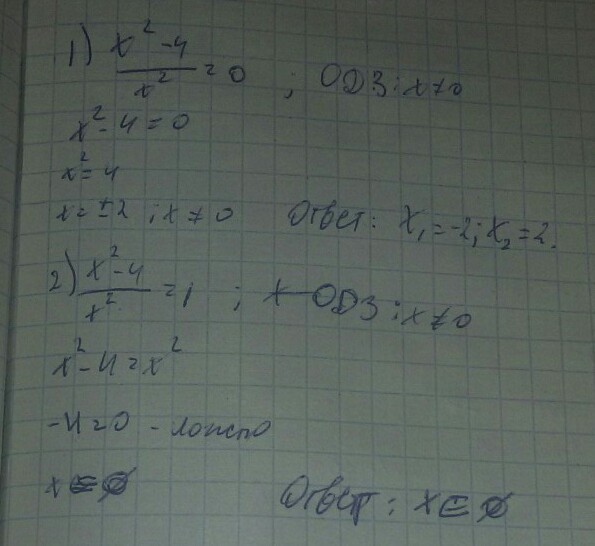 1) (x² - 4)/x² = 0 ; ОДЗ: x ≠ 0
x² - 4 = 0
x² = 4
x = ±2 ; x ≠ 0 Ответ: x₁ = -2; x₂ = 2.
2) (x² - 4)/x² = 1 ; ОДЗ: x ≠ 0
x² - 4 = x²
-4 = 0 - ложно
x ∈ ∅ Ответ: x ∈ ∅